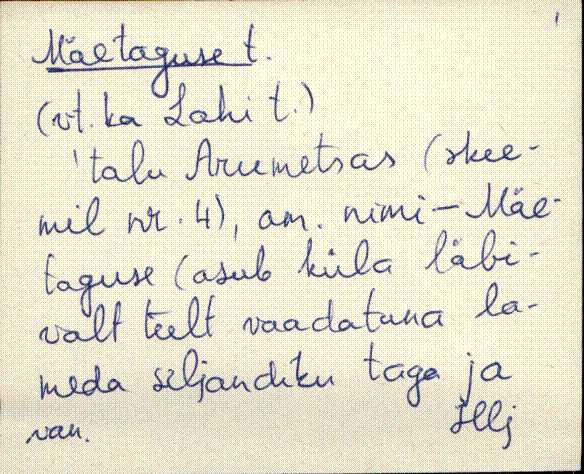 1
Mäetaguse t.
(vt. ka Lahi t.)
'talu Arumetsas (skee-
mil nr. 4), am. nimi – Mäe-
taguse (asub küla läbi-
valt teelt vaadatuna la-
meda seljandiku taga ja
van.